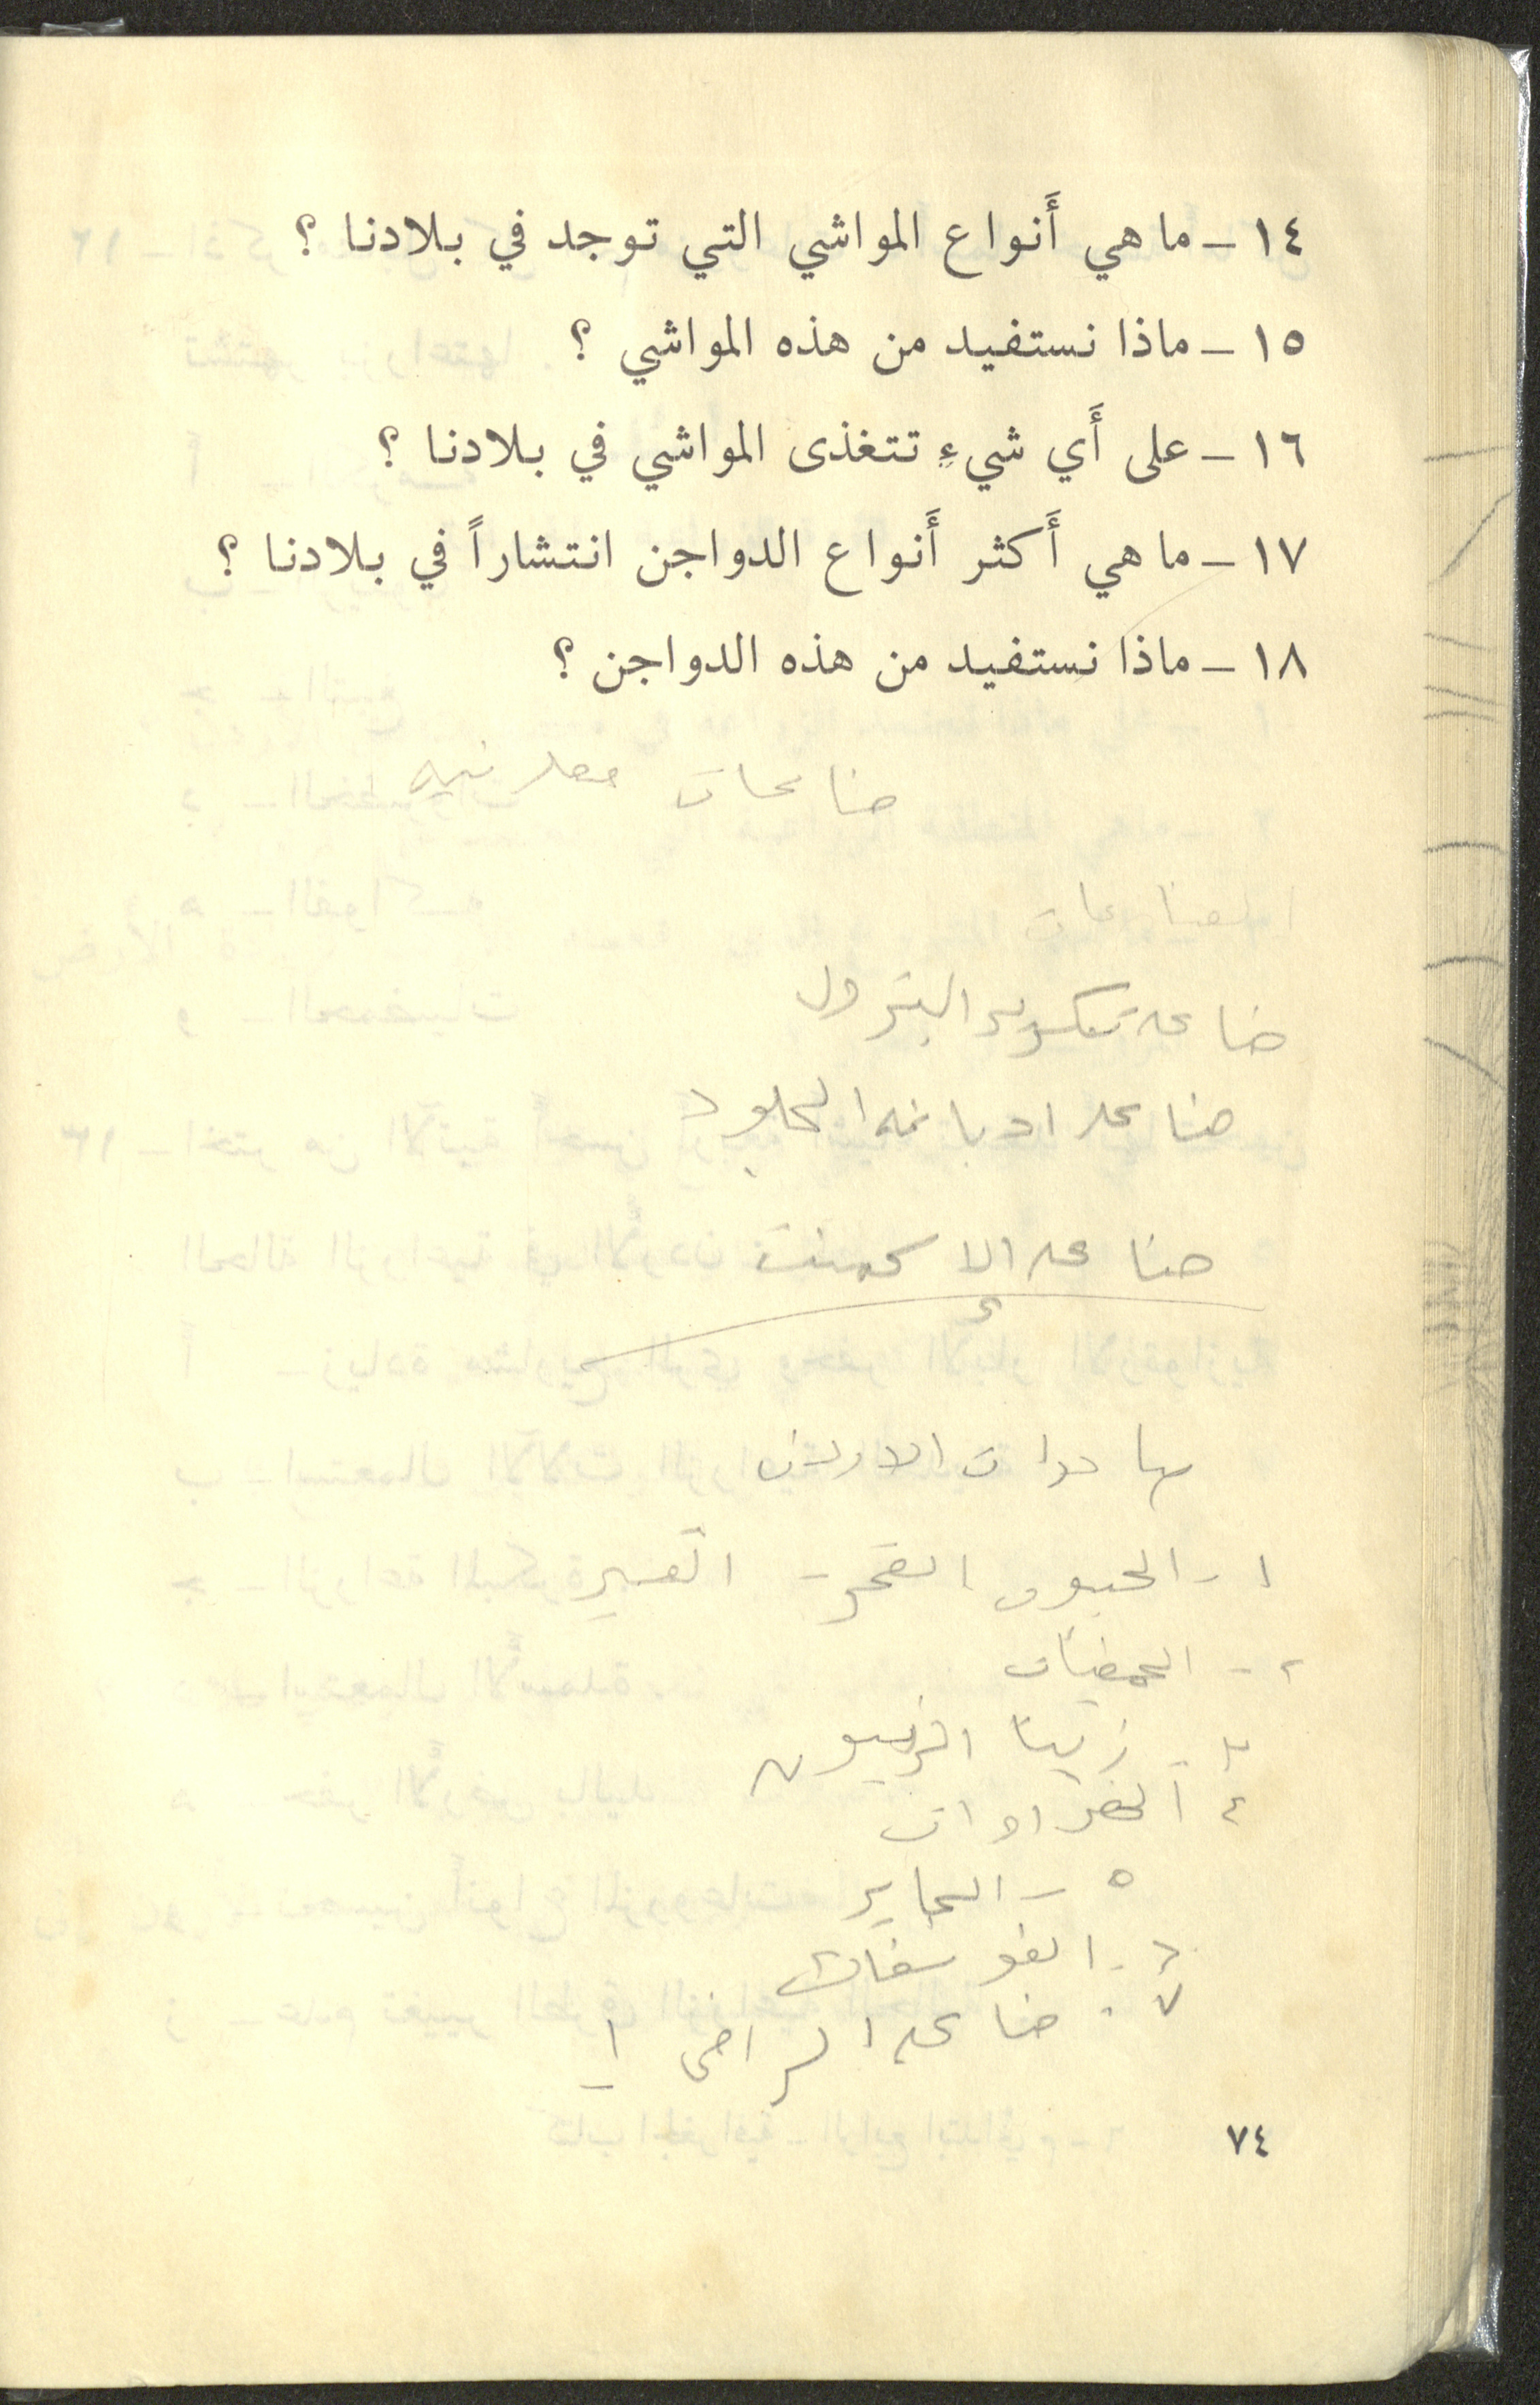 ١٤ - ما هي أَنواع المواشي التي توجد في بلادنا ؟
١٥ - ماذا نستفيد من هذه المواشي ؟
١٦ - على أَي شيءٍ تتغذى المواشي في بلادنا ؟
١٧ - ما هي أَكثر أَنواع الدواجن انتشاراً في بلادنا ؟
١٨ - ماذا نستفيد من هذه الدواجن ؟
صناعات معدنيه
الصناعات
صناعه تكرير البترول
صناعه ادباغه الجلود
صناعه الاسمنت
صادرات الاردن
١ - الحبوب القمح -
٢ - الحمضيات
٣ - زيت الزيتون
٤ الخضراوات
٥ -
٦ - الفوسفات
٧ - صناعه
٧٤